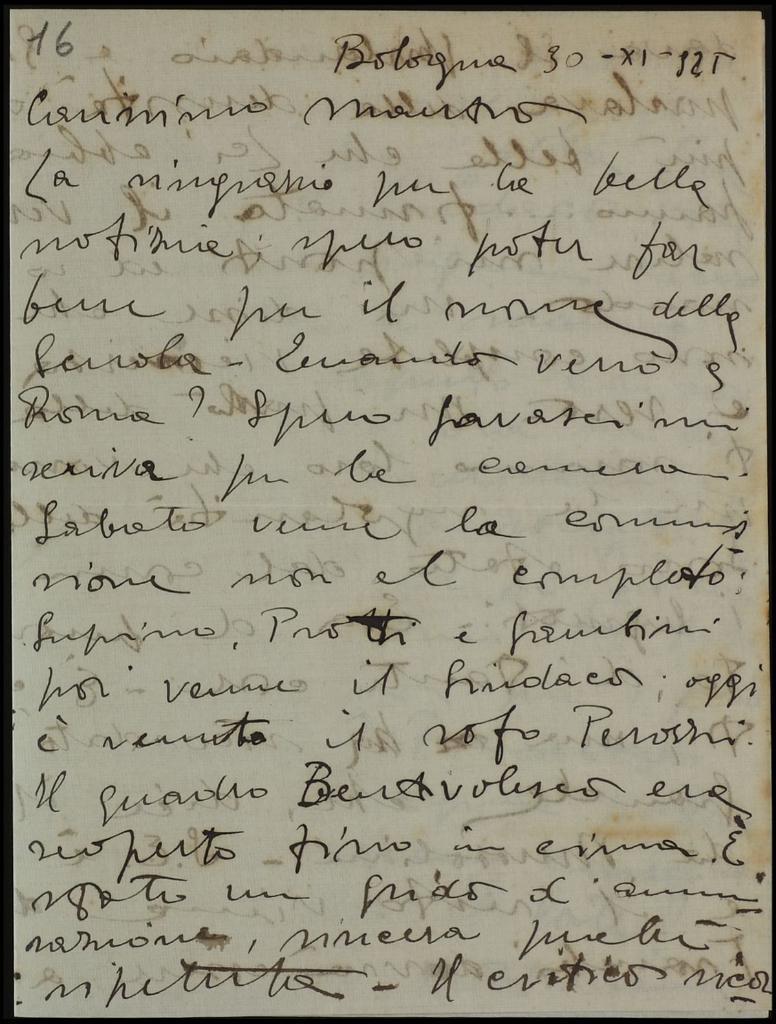 16
Bologna 30-XI-925
Carissimo Maestro
La ringrazio per la bella
notizia; spero poter far
bene per il nome della
Scuola - Quando verrò a
Roma? Spero Gavasci mi
scriva per la camera.
Sabato venne la commis
sione non al completo:
Supino, Protti e Gambini
poi venne il Sindaco; oggi
è venuto il sofo Perozzi.
Il quadro Bentivolesco era
scoperto fino in cima. È
stato un grido d'ammi=
razione, sincera perchè
ripetuta - Il critico